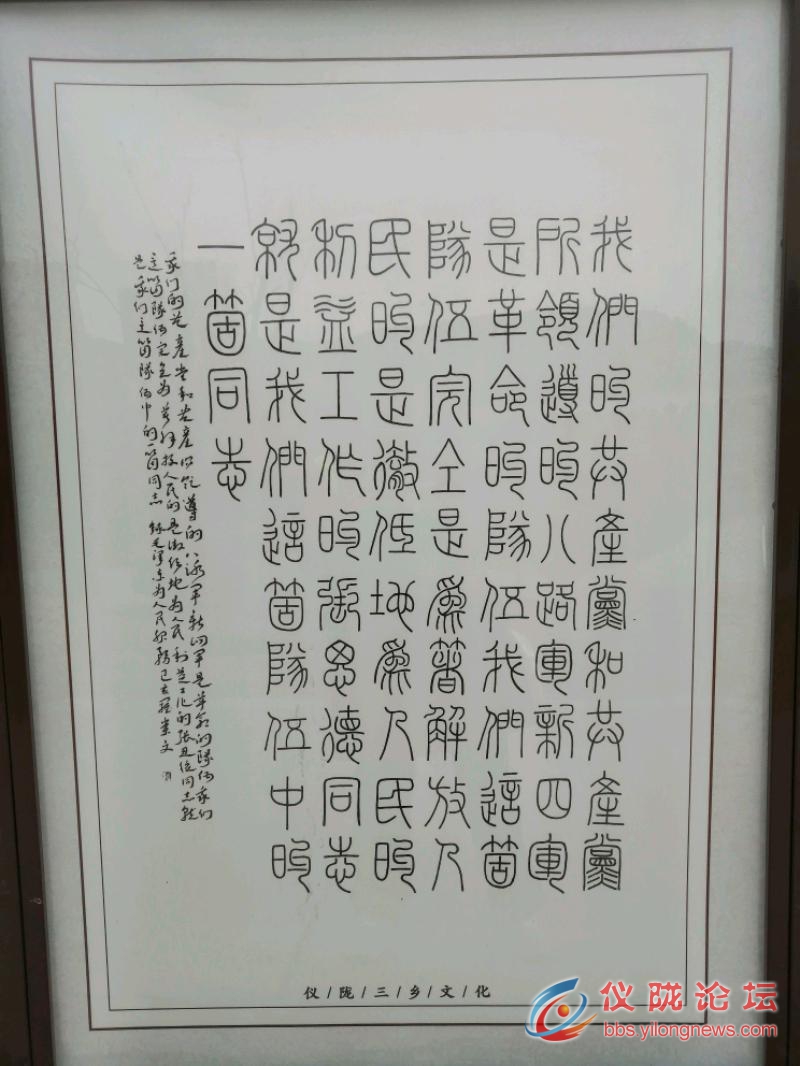 我們的共產黨和共產黨
所領導的八路軍新四軍
是革命的隊伍我們這箇
隊伍完全是爲著解放人
民的是徹底地爲人民的
利益工作的張思德同志
就是我們這箇隊伍中的
一箇同志
我们的共產党和共產所领導的八路军新四军是革命的隊伍我们
這箇隊伍完全为着解放人民的是澈底地为人民利益工作的张思德同志就
是我们這箇隊伍中的一箇同志 録毛泽东为人民服務 己亥 文
仪/陇/三/乡/文/化
仪陇论坛
bbs.yilongnews.com